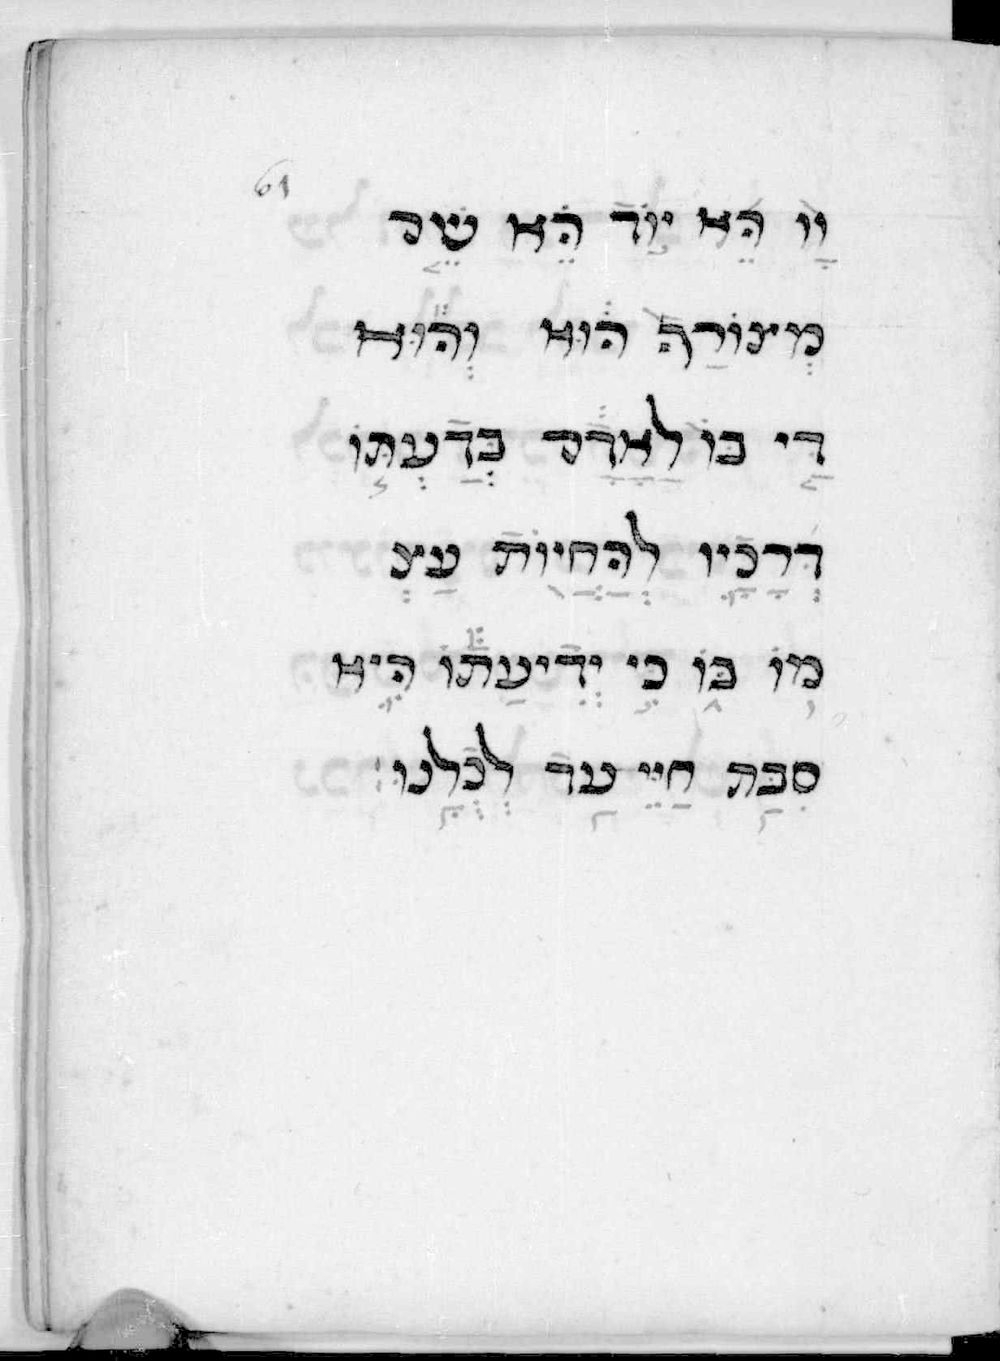 61
וָו הֵא יוֹד הֵא שֵׁם
מְצוֹרַף הוּא וְהוּא
דַּי בּוֹ לָאָדָם בְּדַעְתּוֹ
דְּרָכָיו לְהַחֲיוֹת עַצְ
מוֹ בּוֹ כִּי יְדִיעָתוֹ הִיא
סִבַּת חַיֵּי עַד לְכֻלָּנוּ: